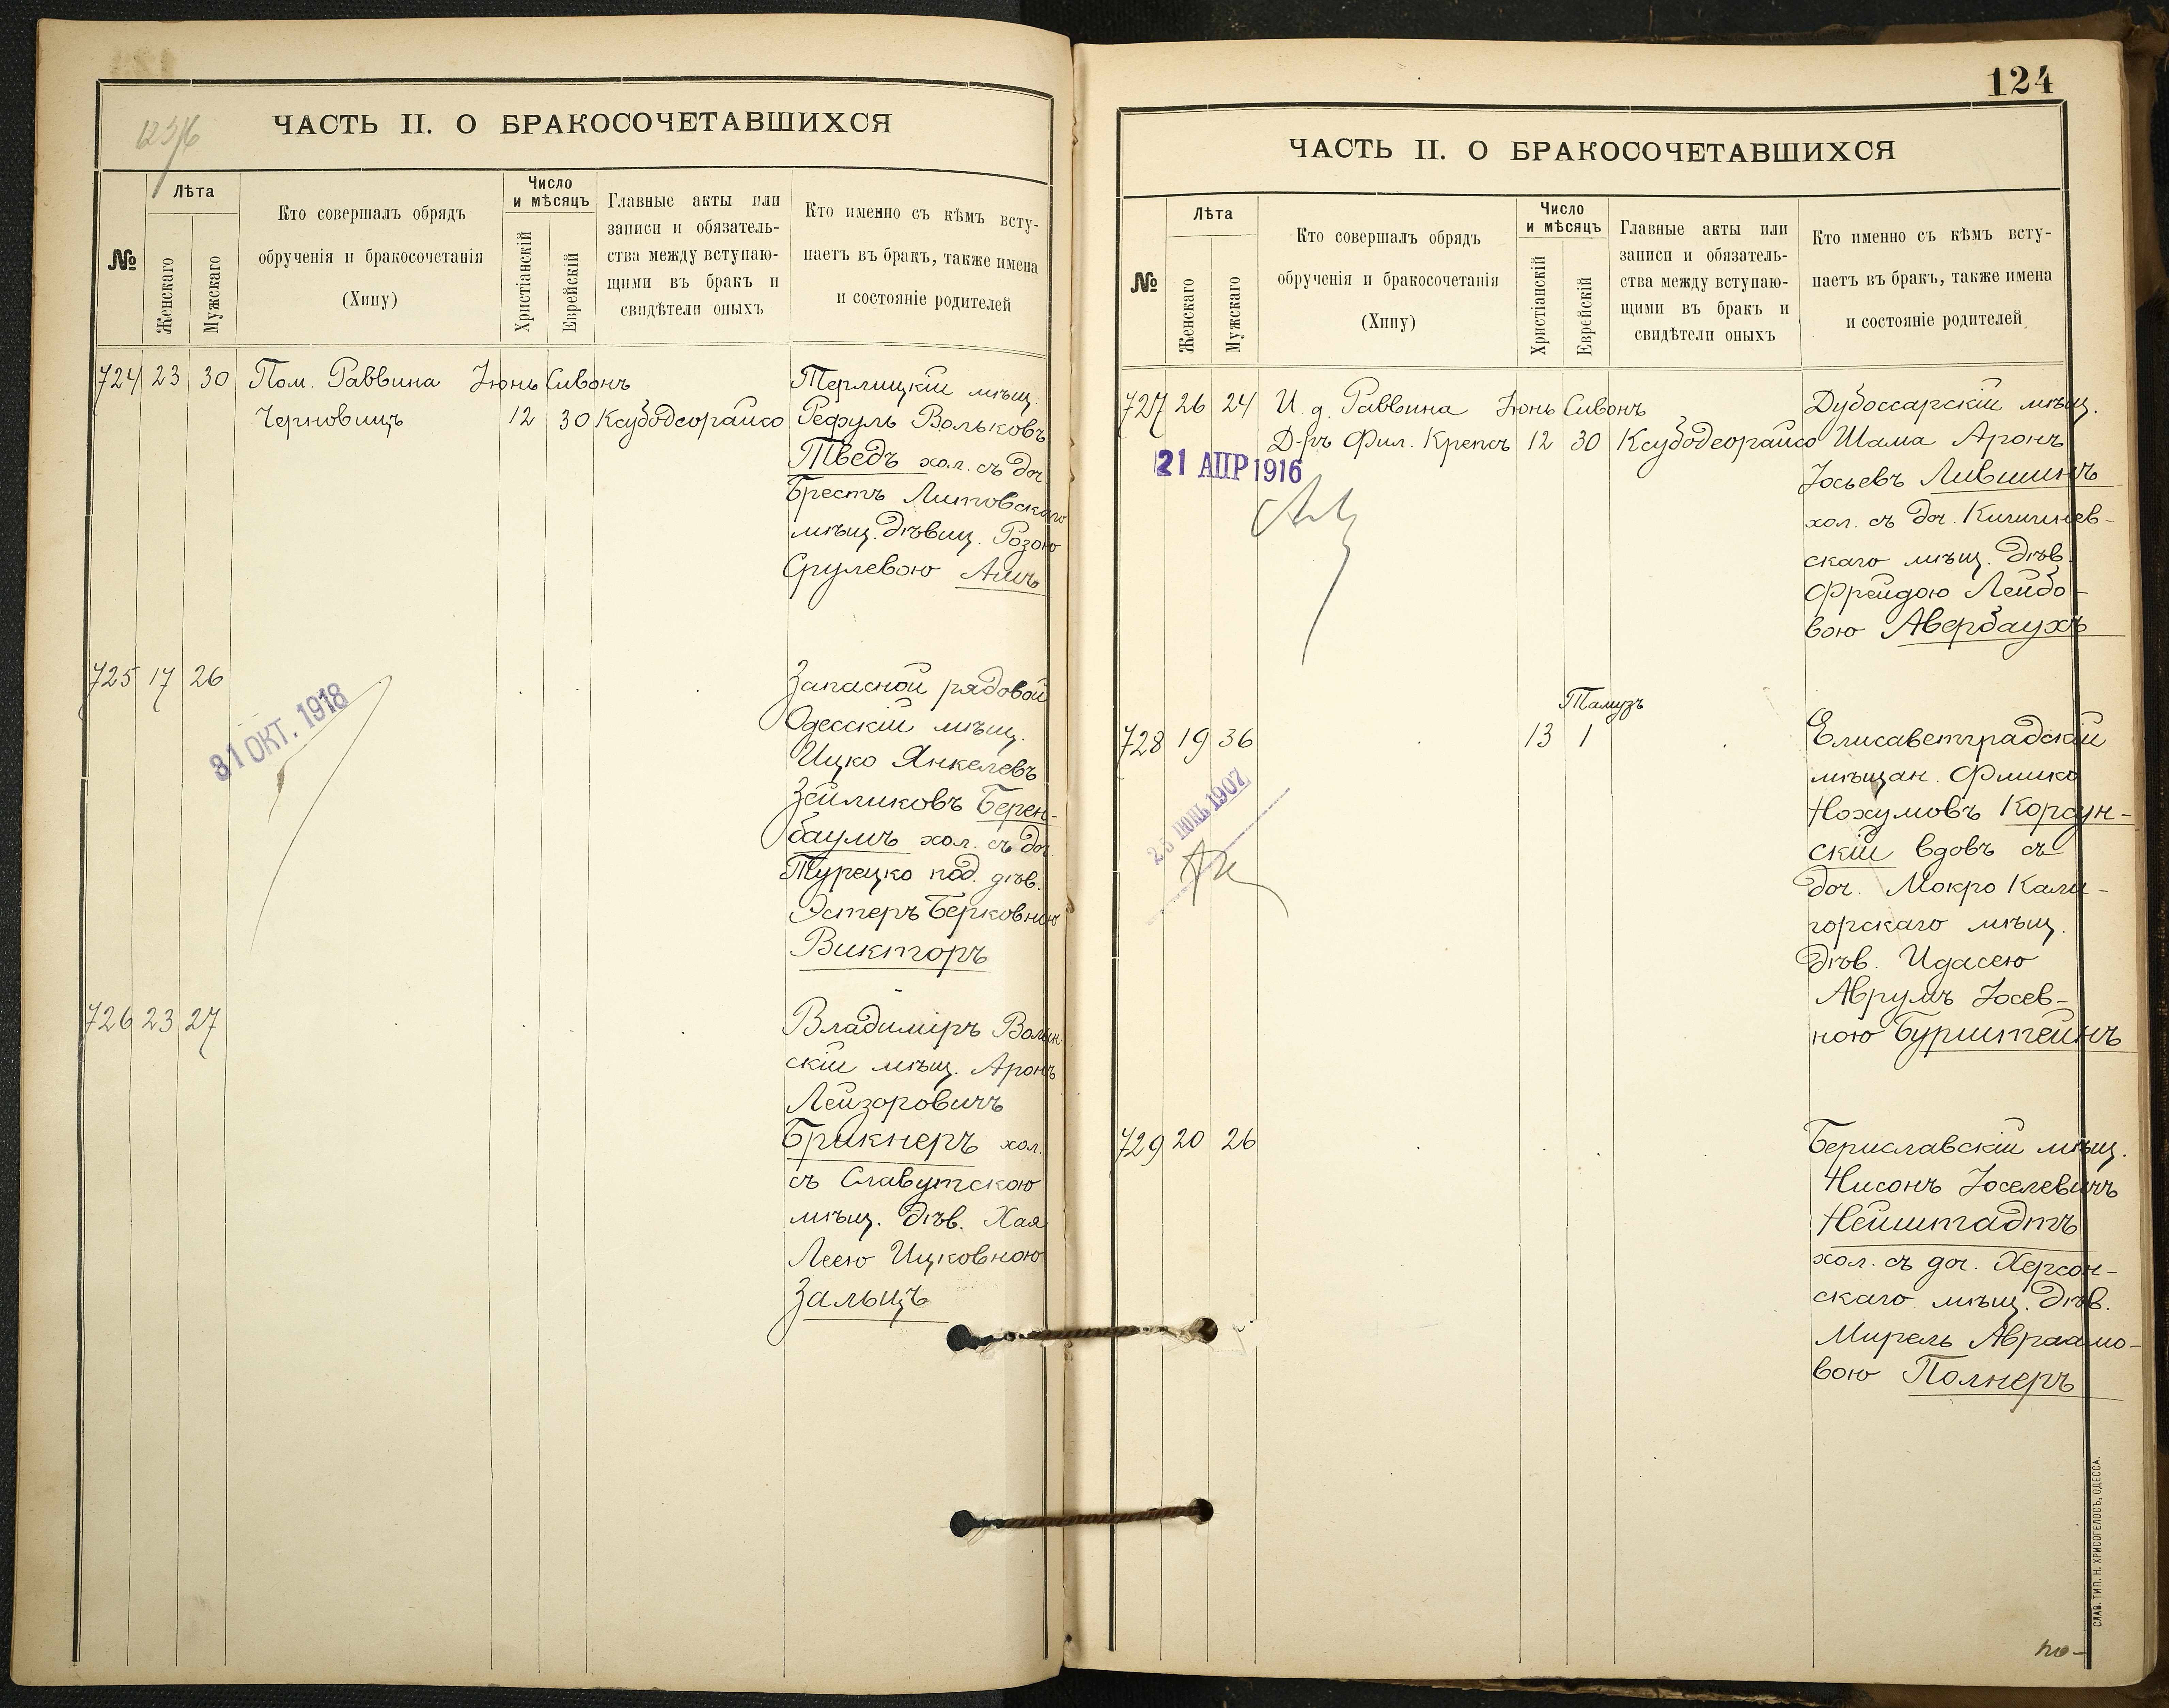 ЧАСТЬ II. О БРАКОСОЧЕТАВШИХСЯ
№
Лѣта
Женскаго
Мужскаго
Кто совершалъ обрядъ
обрученія и бракосочетанія
(Хипу)
Число
и мѣсяцъ
Христіанскій
Еврейскій
Главные акты или
записи и обязатель-
ства между вступаю-
щими въ бракъ и
свидѣтели оныхъ
Кто именно съ кѣмъ всту-
паетъ въ бракъ, также имена
и состояніе родителей
724 23 30 Пом. Раввина Іюнь Сивонъ
Черновицъ 12 30 Ксубодеорайсо
Терлицкій мѣщ.
Рефуль Вольковъ
Тведъ хол. съ доч.
Брестъ Литовскаго
мѣщ. дѣвиц. Розою
Срулевою Ашъ
725 17 26
31 ОКТ. 1918
Запасной рядовой
Одесскій мѣщ.
Ицко Янкелевъ
Зейликовъ Берен-
баумъ хол. съ доч.
Турецко под. дѣв.
Эстеръ Берковною
Викторъ
726 23 27
Владиміръ Волын-
скій мѣщ. Аронъ
Лейзоровичъ
Брикнеръ хол.
съ Славутскою
мѣщ. дѣв. Хая
Леею Ицковною
Зальцъ
124
ЧАСТЬ II. О БРАКОСОЧЕТАВШИХСЯ
№
Лѣта
Женскаго
Мужскаго
Кто совершалъ обрядъ
обрученія и бракосочетанія
(Хипу)
Число
и мѣсяцъ
Христіанскій
Еврейскій
Главные акты или
записи и обязатель-
ства между вступаю-
щими въ бракъ и
свидѣтели оныхъ
Кто именно съ кѣмъ всту-
паетъ въ бракъ, также имена
и состояніе родителей
727 26 24 И. д. Раввина Іюнь Сивонъ
Д-ръ Фил. Крепсъ 12 30 Ксубодеорайсо
21 АПР 1916
Дубоссарскій мѣщ.
Шама Аронъ
Іосьевъ Лившинъ
хол. съ доч. Кишинев-
скаго мѣщ. дѣв.
Фрейдою Лейбо-
вою Авербаухъ
Тамузъ
728 19 36 13 1
23 ІЮНЬ 1907
Елисаветградскій
мѣщан. Фишко
Нохумовъ Корсун-
скій вдовъ съ
доч. Мокро Кали-
горскаго мѣщ.
дѣв. Идасею
Аврумъ Іосев-
ною Бурштейнъ
729 20 26
Бериславскій мѣщ.
Нисонъ Іоселевичъ
Нейштадтъ
хол. съ доч. Херсон-
скаго мѣщ. дѣв.
Мирель Авраамо-
вою Полнеръ
СЛАВ. ТИП. Н. ХРИСОГЕЛОСЪ, ОДЕССА.